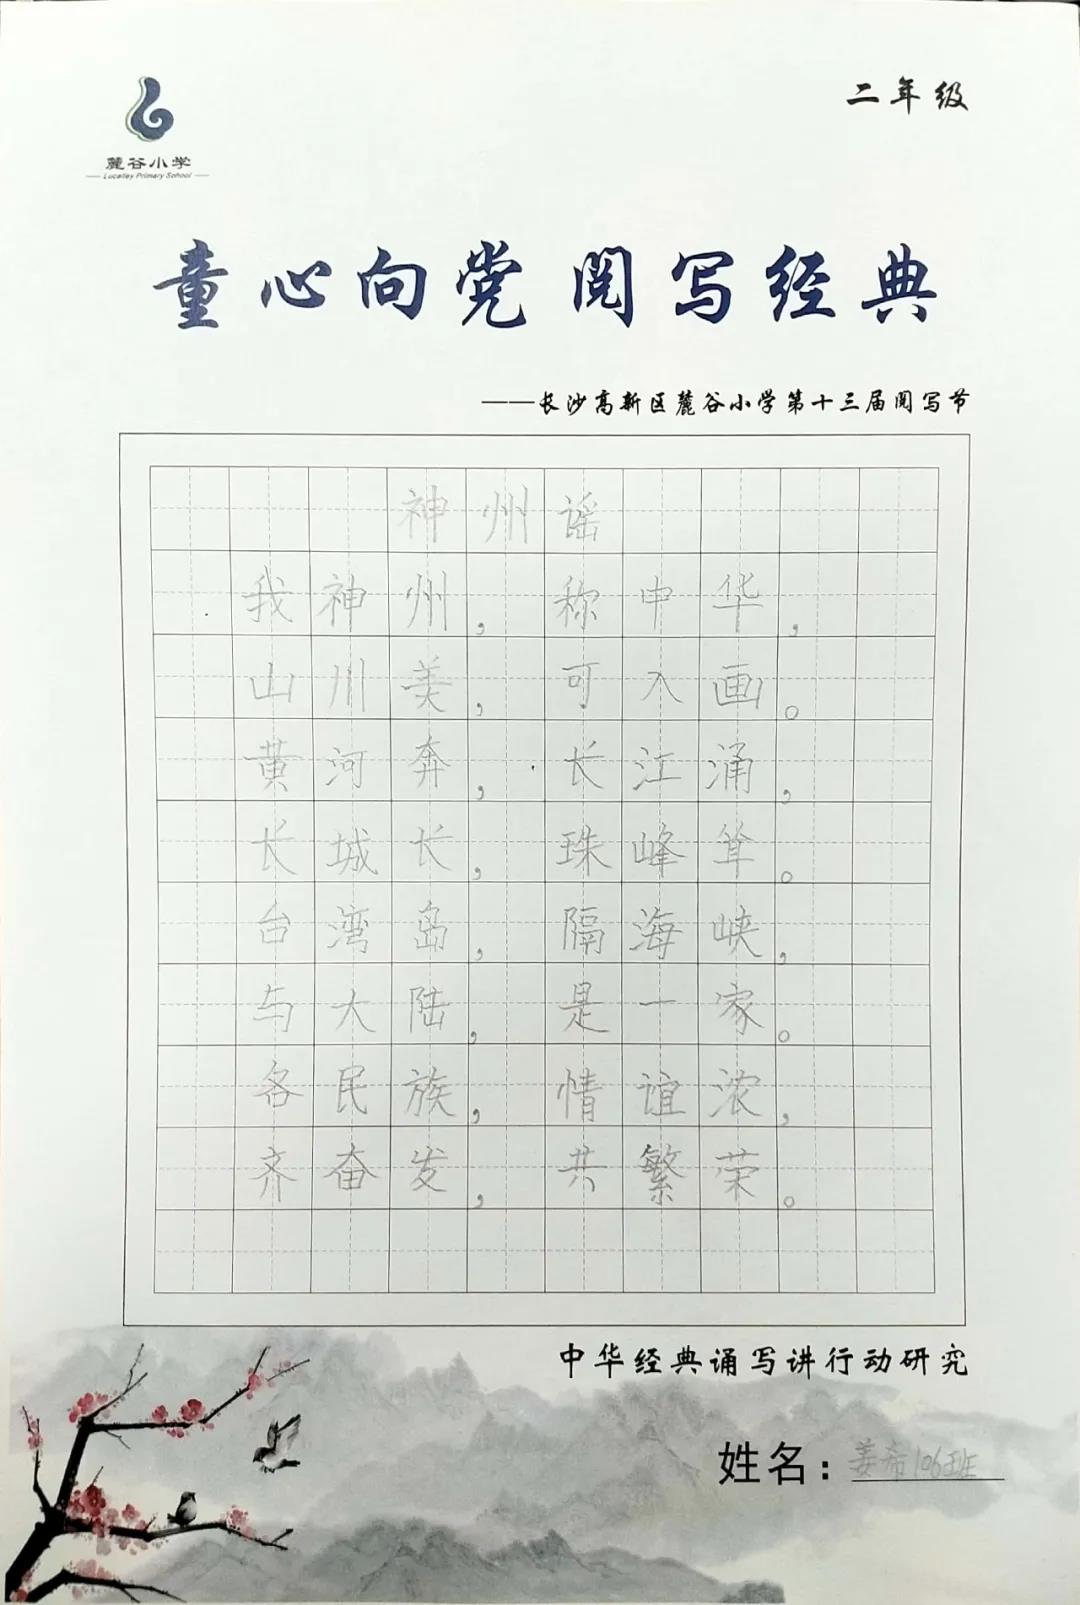 二年级
麓谷小学
Lucalley Primary School
童心向党 阅写经典
——长沙高新区麓谷小学第十三届阅写节
神州谣
我神州，称中华，
山川美，可入画。
黄河奔，长江涌，
长城长，珠峰耸。
台湾岛，隔海峡，
与大陆，是一家。
各民族，情谊浓，
齐奋发，共繁荣。
中华经典诵写讲行动研究
姓名：姜希106班